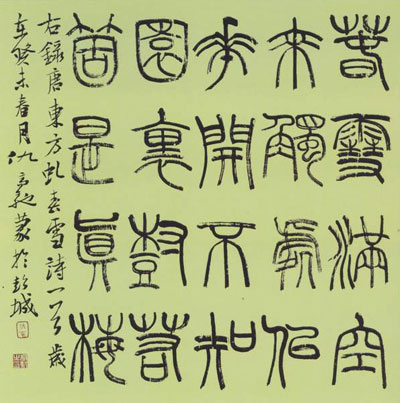 春雪滿空
來觸處佀
華開不知
園裏樹若
箇是眞梅
右錄唐東方虬春雪詩一首歲
在癸未春月仇高馳篆於彭城